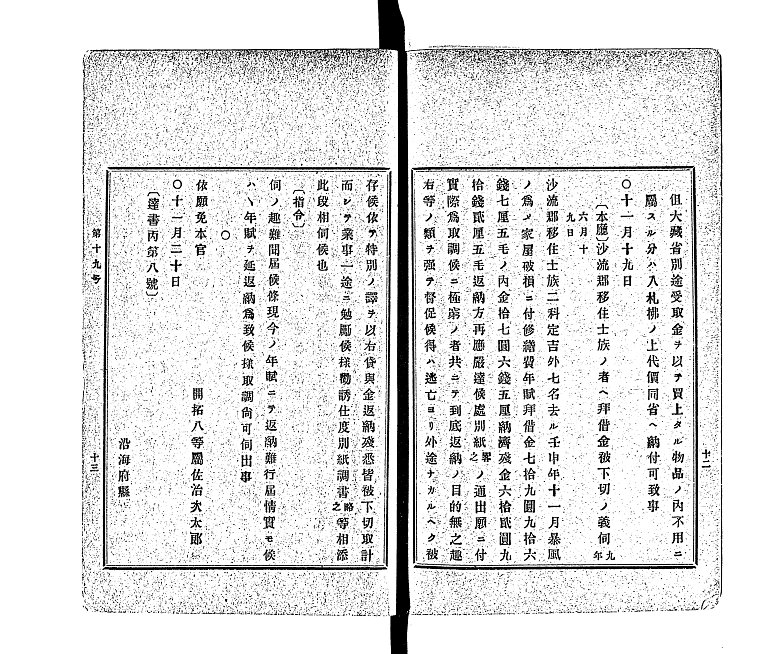 但大藏省別途受取金ヲ以テ買上タル物品ノ內不用ニ
屬スル分ハ入札拂ノ上代價同省ヘ納付可致事
○十一月十九日
〔本廳〕沙流郡移住士族ノ者ヘ拜借金被下切ノ義伺九年
六月十
九日
沙流郡移住士族二科定吉外七名去ル壬申年十一月暴風
ノ爲メ家屋破損ニ付修繕費年賦拜借金七拾九圓九拾六
錢七厘五毛ノ內金拾七圓六錢五厘納濟殘金六拾貳圓九
拾錢貳厘五毛返納方再應嚴達候處別紙略之ノ通出願ニ付
實際爲取調候ニ極窮ノ者共ニテ到底返納ノ目的無之趣
右等ノ類ヲ强テ督促候得ハ逃亡ヨリ外途ナカルヘク被
十二
存候依テ特別ノ譯ヲ以右貸與金返納殘悉皆被下切取計
而シテ業事一途ニ勉勵候樣勸誘仕度別紙調書略之等相添
此段相伺候也
〔指令〕
伺ノ趣難聞屆候條現今ノ年賦ニテ返納難行屆情實モ候
ハヽ年賦ヲ延返納爲致候樣取調尙可伺出事
○
開拓八等屬佐治次太郎
依願免本官
○十一月二十日
〔達書丙第八號〕
沿海府縣
第十九号
十三